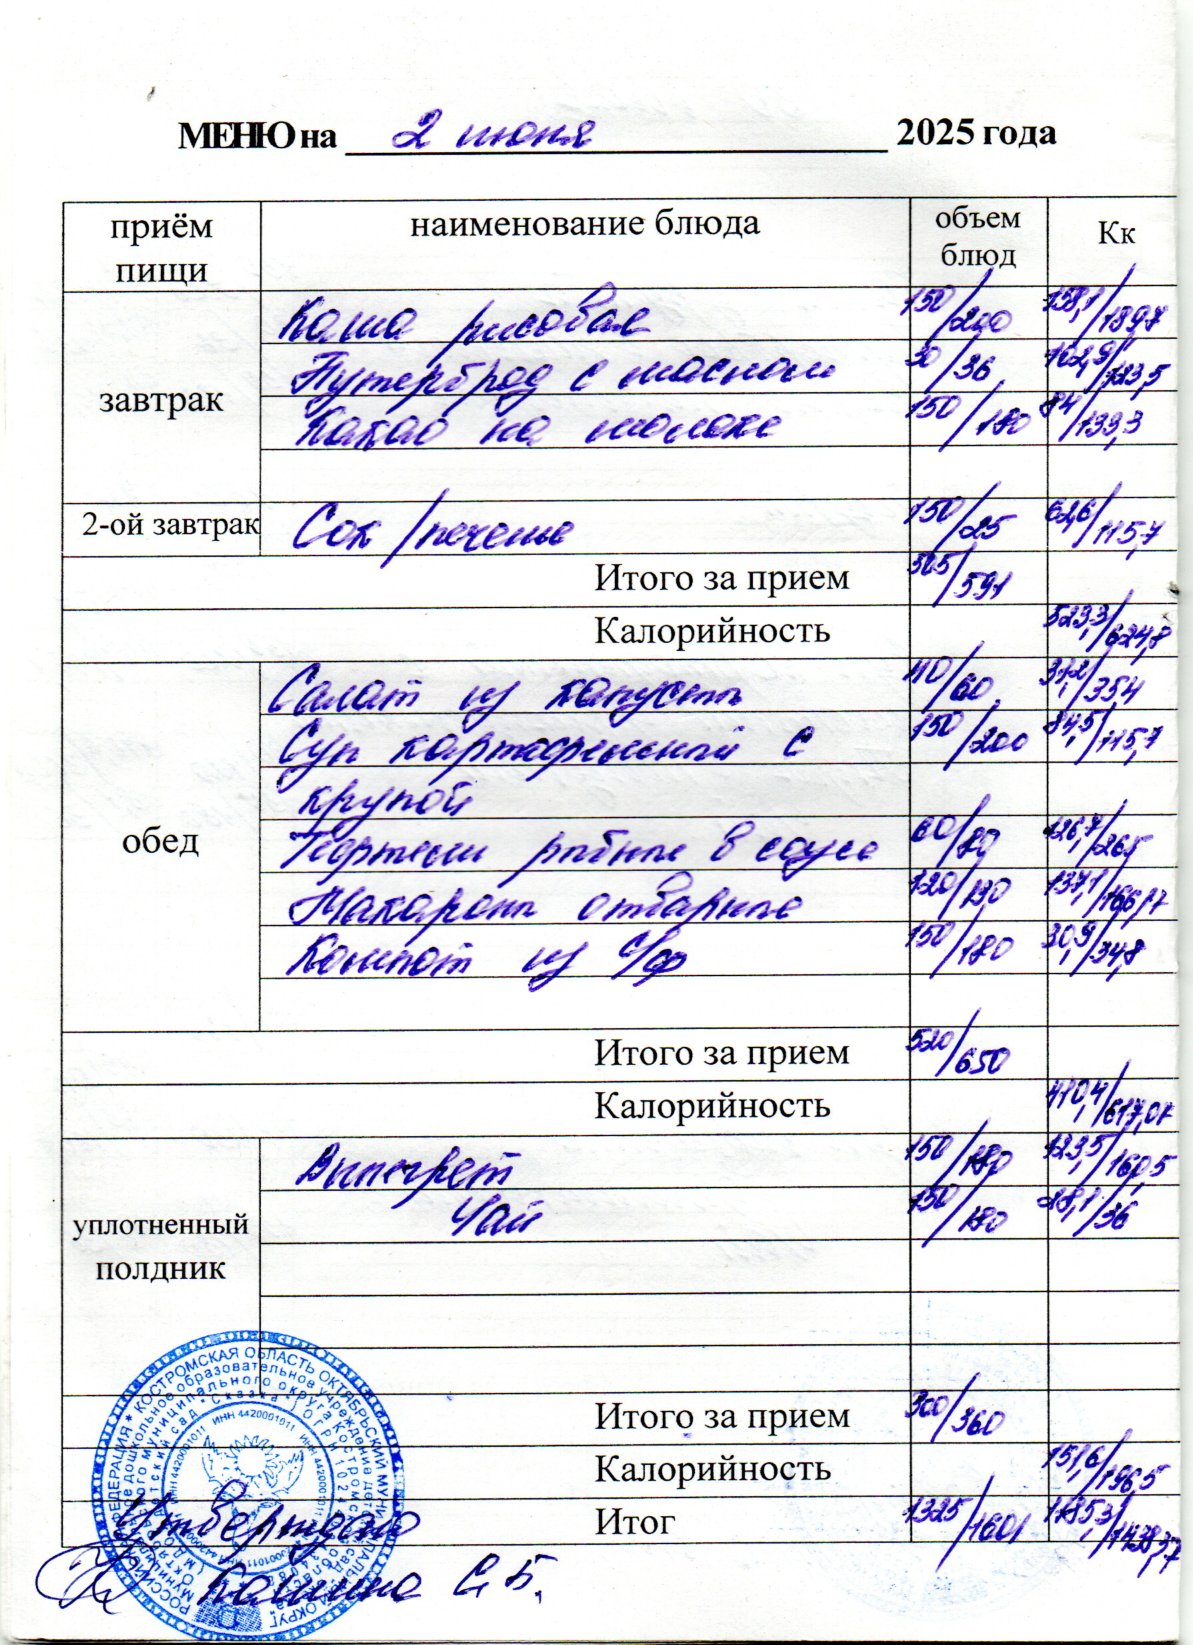 МЕНЮ на 2 июня 2025 года
приём пищи наименование блюда объем блюд Кк
завтрак
Каша рисовая 150/200 158,1/189,7
Бутерброд с маслом 30/36 102,9/123,5
Какао на молоке 150/180 84/133,3
2-ой завтрак Сок/печенье 150/25 62,6/115,7
Итого за прием 505/591
Калорийность 523,3/624,8
обед
Салат из капусты 40/60 31,2/35,4
Суп картофельный с 150/200 84,5/115,7
крупой
Тефтели рыбные в соусе 60/80 126,7/265
Макароны отварные 120/130 137,1/166,17
Компот из с/ф 150/180 30,9/34,8
Итого за прием 520/650
Калорийность 410,4/617,07
уплотненный полдник
Винегрет 150/180 123,5/160,5
Чай 150/180 28,1/36
Итого за прием 300/360
Калорийность 151,6/196,5
Итог 1325/1601 1185,3/1438,37
Утверждаю
Калинина С.Б.
РОССИЙСКАЯ ФЕДЕРАЦИЯ * КОСТРОМСКАЯ ОБЛАСТЬ ОКТЯБРЬСКИЙ МУНИЦИПАЛЬНЫЙ ОКРУГ
ИНН 4420001011